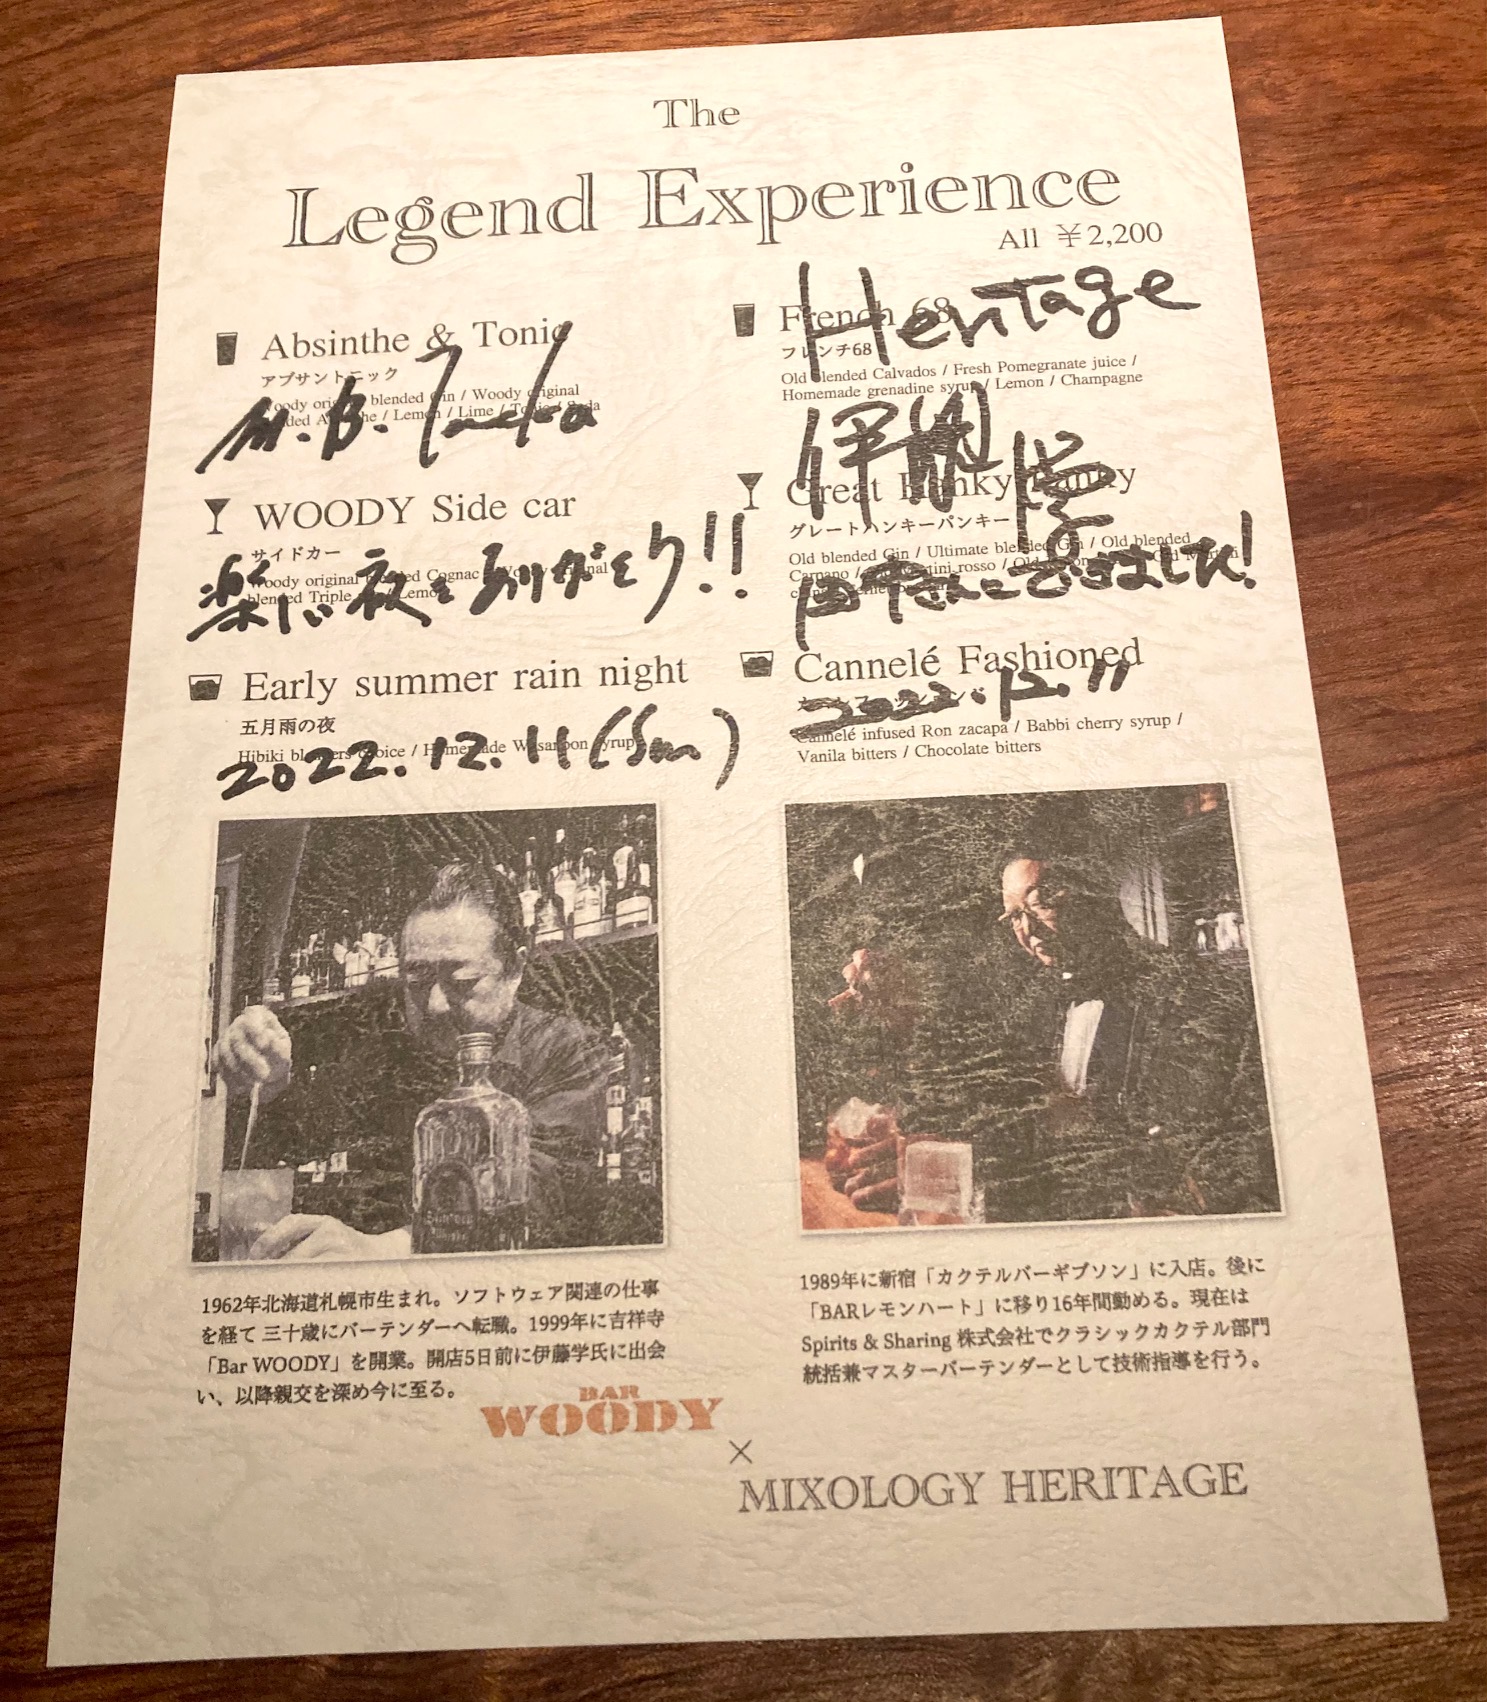 The
Legend Experience
All ¥2,200
Absinthe & Tonic
アブサントニック
Woody original blended Gin / Woody original
blended Absinthe / Lemon / Lime / Tonic / Soda
WOODY Side car
サイドカー
Woody original blended Cognac / Woody original
blended Triple / Lemon
楽しい夜をありがとう!!
Early summer rain night
五月雨の夜
Hibiki blenders choice / Homemade Wasanbon syrup
2022.12.11(Sun)
Heritage
French 68
フレンチ68
Old blended Calvados / Fresh Pomegranate juice /
Homemade grenadine syrup / Lemon / Champagne
伊藤 学
Great Hanky Panky
グレートハンキーパンキー
Old blended Gin / Ultimate blended Gin / Old blended
Carpano / rosso / Old
できました!
Cannelé Fashioned
2022.12.11
Cannelé infused Ron zacapa / Babbi cherry syrup /
Vanila bitters / Chocolate bitters
1962年北海道札幌市生まれ。ソフトウェア関連の仕事
を経て 三十歳にバーテンダーへ転職。1999年に吉祥寺
「Bar WOODY」を開業。開店5日前に伊藤学氏に出会
い、以降親交を深め今に至る。
1989年に新宿「カクテルバーギブソン」に入店。後に
「BARレモンハート」に移り16年間勤める。現在は
Spirits & Sharing 株式会社でクラシックカクテル部門
統括兼マスターバーテンダーとして技術指導を行う。
BAR
WOODY
×
MIXOLOGY HERITAGE